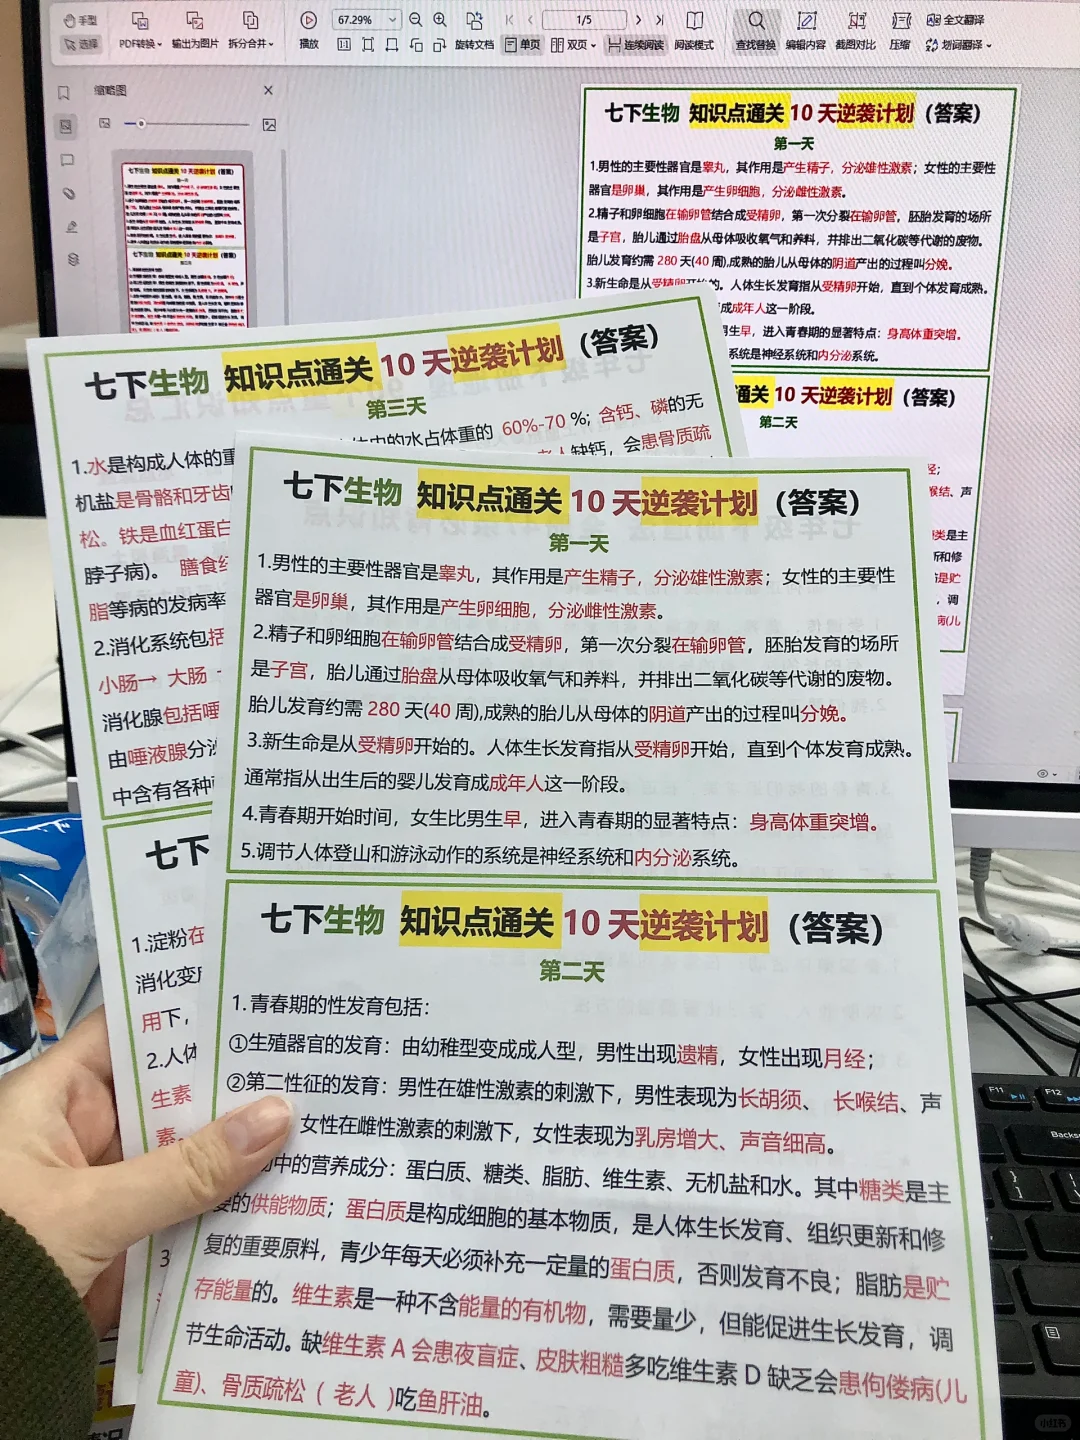 手型
选择
PDF转换
输出为图片
拆分合并
播放
67.29%
旋转文档
单页
双页
连续阅读
1/5
阅读模式
查找替换
编辑内容
截图对比
压缩
全文翻译
划词翻译
缩略图
七下生物 知识点通关10天逆袭计划（答案）
第一天
1.男性的主要性器官是睾丸，其作用是产生精子，分泌雄性激素；女性的主要性
器官是卵巢，其作用是产生卵细胞，分泌雌性激素。
2.精子和卵细胞在输卵管结合成受精卵，第一次分裂在输卵管，胚胎发育的场所
是子宫，胎儿通过胎盘从母体吸收氧气和养料，并排出二氧化碳等代谢的废物。
胎儿发育约需 280 天(40 周),成熟的胎儿从母体的阴道产出的过程叫分娩。
3.新生命是从受精卵开始的。人体生长发育指从受精卵开始，直到个体发育成熟。
成成年人这一阶段。
男生早，进入青春期的显著特点：身高体重突增。
系统是神经系统和内分泌系统。
通关10天逆袭计划（答案）
第二天
七下生物 知识点通关10天逆袭计划（答案）
第三天
1.水是构成人体的重
体内的水占体重的 60%-70 %; 含钙、磷的无
机盐是骨骼和牙齿
老人缺钙，会患骨质疏
松。铁是血红蛋白
脖子病)。 膳食纤
脂等病的发病率
2.消化系统包括
小肠→ 大肠
消化腺包括唾
由唾液腺分泌
中含有各种
七下
1.淀粉在
消化变成
用下，
2.人体
生素
素。
3
七下生物 知识点通关10天逆袭计划（答案）
第一天
1.男性的主要性器官是睾丸，其作用是产生精子，分泌雄性激素；女性的主要性
器官是卵巢，其作用是产生卵细胞，分泌雌性激素。
2.精子和卵细胞在输卵管结合成受精卵，第一次分裂在输卵管，胚胎发育的场所
是子宫，胎儿通过胎盘从母体吸收氧气和养料，并排出二氧化碳等代谢的废物。
胎儿发育约需 280 天(40 周),成熟的胎儿从母体的阴道产出的过程叫分娩。
3.新生命是从受精卵开始的。人体生长发育指从受精卵开始，直到个体发育成熟。
通常指从出生后的婴儿发育成成年人这一阶段。
4.青春期开始时间，女生比男生早，进入青春期的显著特点：身高体重突增。
5.调节人体登山和游泳动作的系统是神经系统和内分泌系统。
七下生物 知识点通关10天逆袭计划（答案）
第二天
1.青春期的性发育包括：
①生殖器官的发育：由幼稚型变成成人型，男性出现遗精，女性出现月经；
②第二性征的发育：男性在雄性激素的刺激下，男性表现为长胡须、 长喉结、声
女性在雌性激素的刺激下，女性表现为乳房增大、声音细高。
中的营养成分：蛋白质、糖类、脂肪、维生素、无机盐和水。其中糖类是主
要的供能物质；蛋白质是构成细胞的基本物质，是人体生长发育、组织更新和修
复的重要原料，青少年每天必须补充一定量的蛋白质，否则发育不良；脂肪是贮
存能量的。维生素是一种不含能量的有机物，需要量少，但能促进生长发育，调
节生命活动。缺维生素 A 会患夜盲症、皮肤粗糙多吃维生素 D 缺乏会患佝偻病(儿
童)、骨质疏松（ 老人 )吃鱼肝油。
F11
F12
Backs
小红书